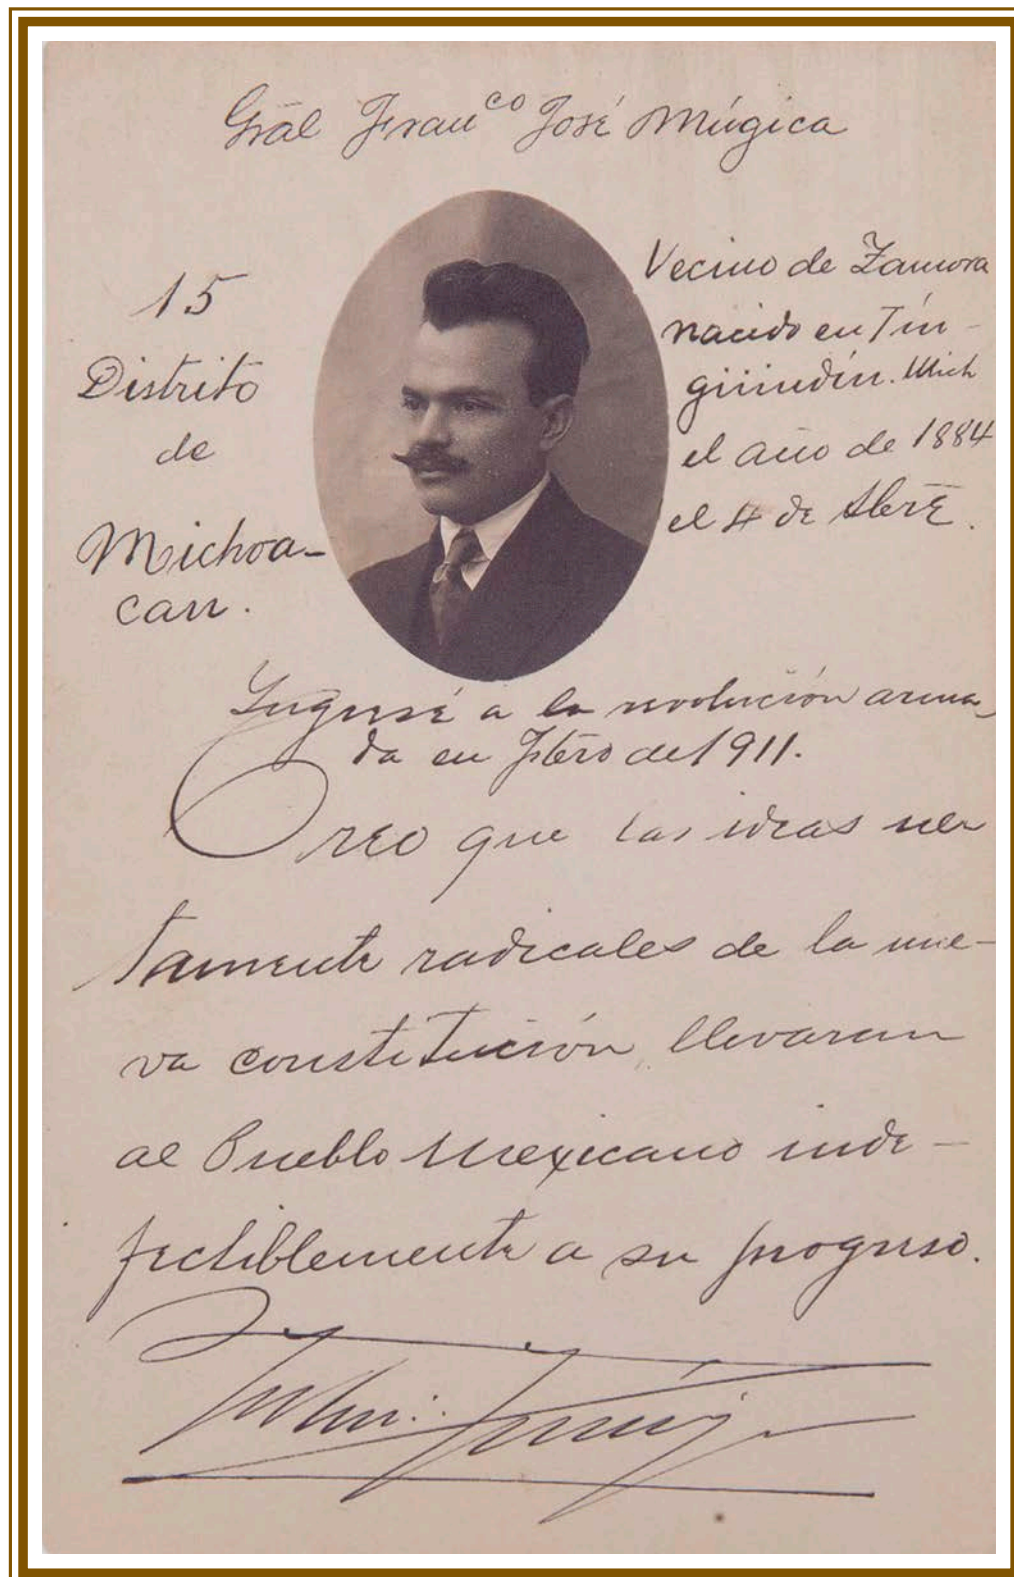 Gral Franco José Múgica
15
Distrito
de
Michoa-
can.
Vecino de Zamora
nacido en Tin-
güindín. Mich
el año de 1884
el 4 de
Ingresé a la revolución arma-
da en Fbro del 1911.
Creo que las ideas ne
tamente radicales de la nue-
va constitución, llevaran
al Pueblo Mexicano inde-
fectiblemente a su progreso.